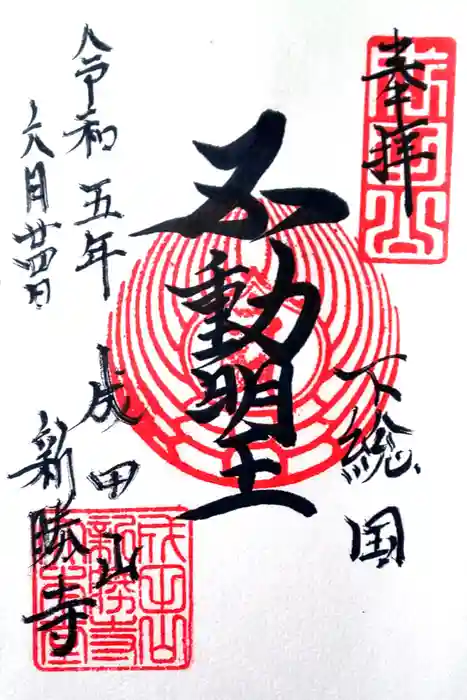 奉拝
下総国
不動明王
成田山
新勝寺
令和五年
六月廿四日